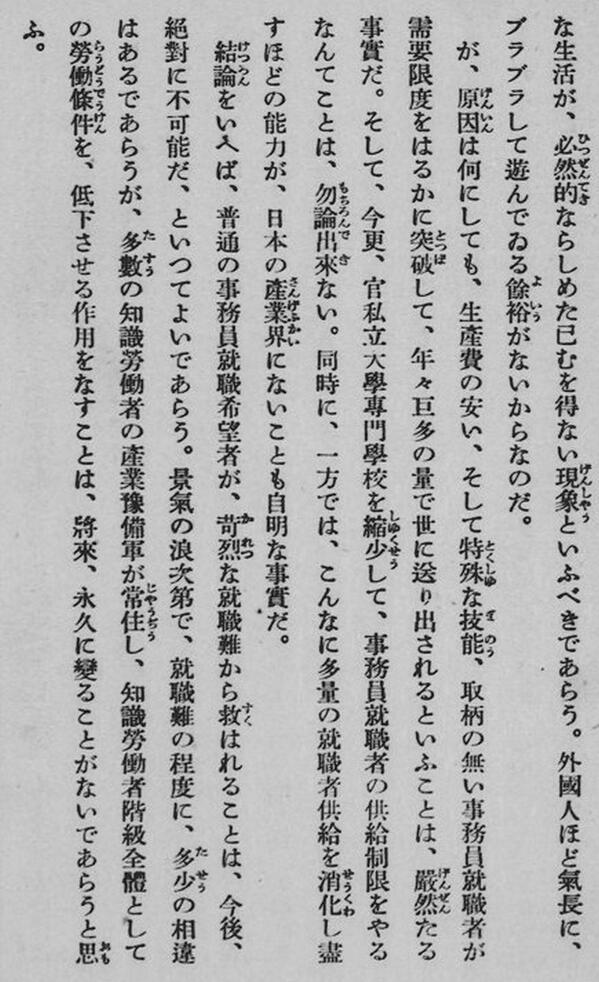 な生活が、必然的ならしめた已むを得ない現象といふべきであらう。外國人ほど氣長に、
ブラブラして遊んでゐる餘裕がないからなのだ。
が、原因は何にしても、生產費の安い、そして特殊な技能、取柄の無い事務員就職者が
需要限度をはるかに突破して、年々巨多の量で世に送り出されるといふことは、嚴然たる
事實だ。そして、今更、官私立大學專門學校を縮少して、事務員就職者の供給制限をやる
なんてことは、勿論出來ない。同時に、一方では、こんなに多量の就職者供給を消化し盡
すほどの能力が、日本の產業界にないことも自明な事實だ。
結論をいへば、普通の事務員就職希望者が、苛烈な就職難から救はれることは、今後、
絕對に不可能だ、といつてよいであらう。景氣の浪次第で、就職難の程度に、多少の相違
はあるであらうが、多數の知識勞働者の產業豫備軍が常住し、知識勞働者階級全體として
の勞働條件を、低下させる作用をなすことは、將來、永久に變ることがないであらうと思
ふ。